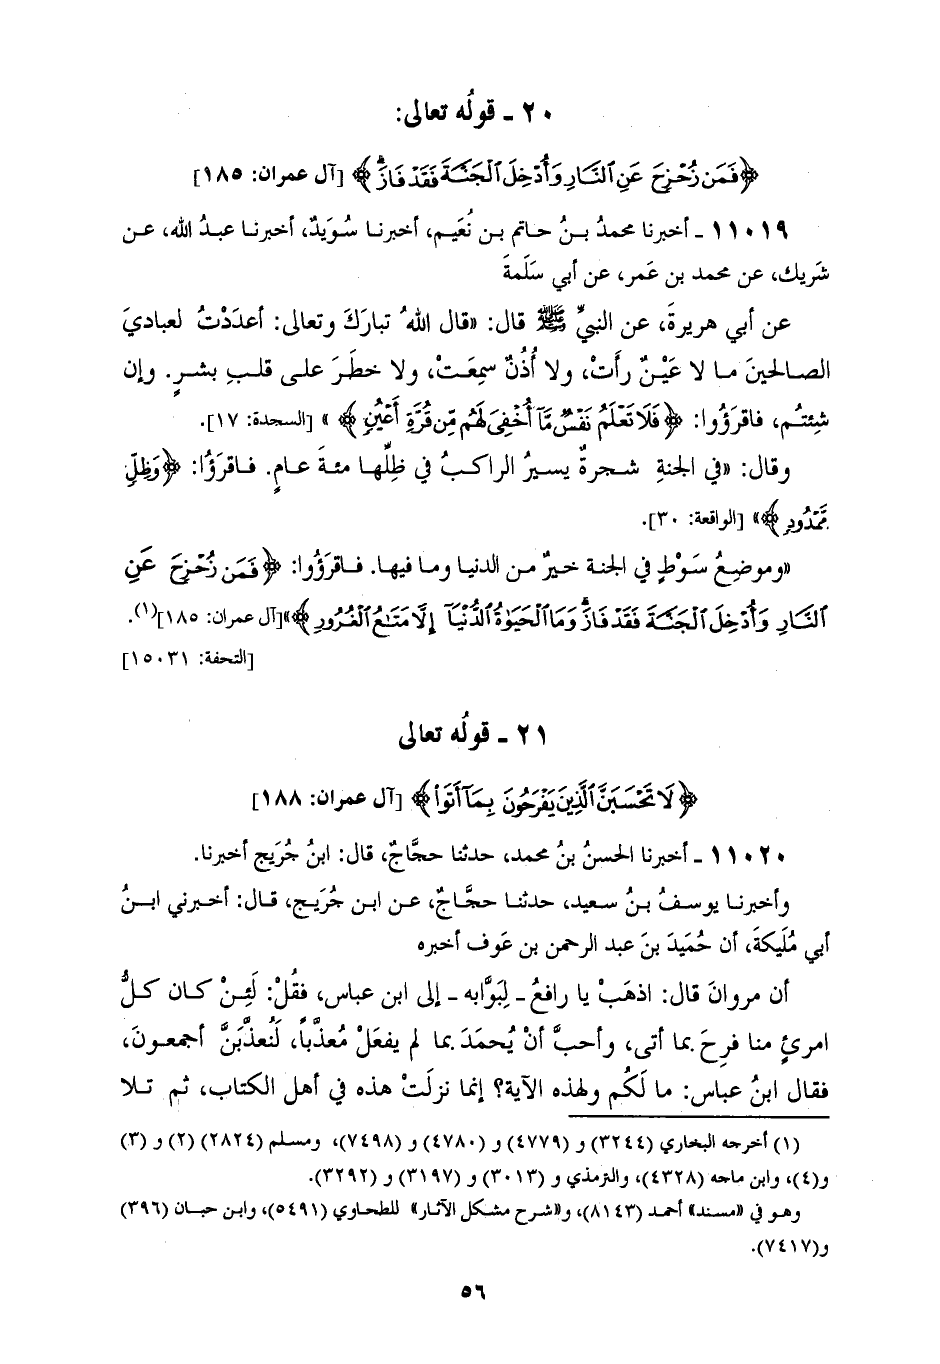 ٢٠ ـ قولُه تعالى:
﴿فَمَن زُحْزِحَ عَنِ ٱلنَّارِ وَأُدْخِلَ ٱلْجَنَّةَ فَقَدْ فَازَ﴾ [آل عمران: ١٨٥]
١١٠١٩ ـ أخبرنا محمدُ بنُ حاتم بن نُعَيم، أخبرنا سُوَيدٌ، أخبرنا عبدُ الله، عن
شَريك، عن محمد بن عَمر، عن أبي سَلَمةَ
عن أبي هريرةَ، عن النبيِّ ﷺ قال: «قال اللهُ تباركَ وتعالى: أعدَدْتُ لعباديَ
الصالحينَ ما لا عَيْنٌ رأَتْ، ولا أُذُنٌ سمِعَتْ، ولا خطَرَ على قلبِ بشرٍ. وإن
شِئتُم، فاقرَؤُوا: ﴿فَلَا تَعْلَمُ نَفْسٌ مَّآ أُخْفِىَ لَهُم مِّن قُرَّةِ أَعْيُنٍ﴾ » [السجدة: ١٧].
وقال: «في الجنةِ شجرةٌ يسيرُ الراكبُ في ظِلِّها مئةَ عامٍ. فاقرَؤُا: ﴿وَظِلٍّ
مَّمْدُودٍ﴾» [الواقعة: ٣٠].
«وموضِعُ سَوْطٍ في الجنة خيرٌ من الدنيا وما فيها. فاقرَؤُوا: ﴿فَمَن زُحْزِحَ عَنِ
ٱلنَّارِ وَأُدْخِلَ ٱلْجَنَّةَ فَقَدْ فَازَ وَمَا ٱلْحَيَوٰةُ ٱلدُّنْيَآ إِلَّا مَتَٰعُ ٱلْغُرُورِ﴾»[آل عمران: ١٨٥](١).
[التحفة: ١٥٠٣١]
٢١ ـ قولُه تعالى
﴿لَا تَحْسَبَنَّ ٱلَّذِينَ يَفْرَحُونَ بِمَآ أَتَوا۟﴾ [آل عمران: ١٨٨]
١١٠٢٠ ـ أخبرنا الحسنُ بنُ محمد، حدثنا حجَّاجٌ، قال: ابنُ جُرَيج أخبرنا.
وأخبرنا يوسفُ بنُ سعيد، حدثنا حجَّاجٌ، عن ابن جُرَيج، قال: أخبرني ابنُ
أبي مُلَيكةَ، أن حُمَيدَ بنَ عبد الرحمن بن عَوف أخبره
أن مروانَ قال: اذهَبْ يا رافعُ ـ لِبَوَّابه ـ إلى ابن عباس، فقُلْ: لَئِنْ كان كلُّ
امرئٍ منا فرِحَ بما أتى، وأحبَّ أنْ يُحمَدَ بما لم يفعَلْ مُعذَّباً، لَنُعذَّبَنَّ أجمعونَ،
فقال ابنُ عباس: ما لَكُم ولهذه الآية؟ إنما نزلَتْ هذه في أهل الكتاب، ثم تلا
(١) أخرجه البخاري (٣٢٤٤) و (٤٧٧٩) و (٤٧٨٠) و (٧٤٩٨)، ومسلم (٢٨٢٤) (٢) و (٣)
و(٤)، وابن ماجه (٤٣٢٨)، والترمذي و (٣٠١٣) و (٣١٩٧) و (٣٢٩٢).
وهو في «مسند» أحمد (٨١٤٣)، و«شرح مشكل الآثار» للطحاوي (٥٤٩١)، وابن حبان (٣٩٦)
و(٧٤١٧).
٥٦